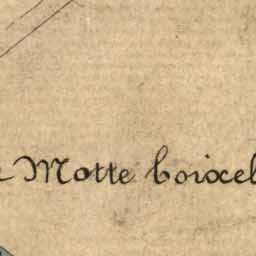 Motte boixel